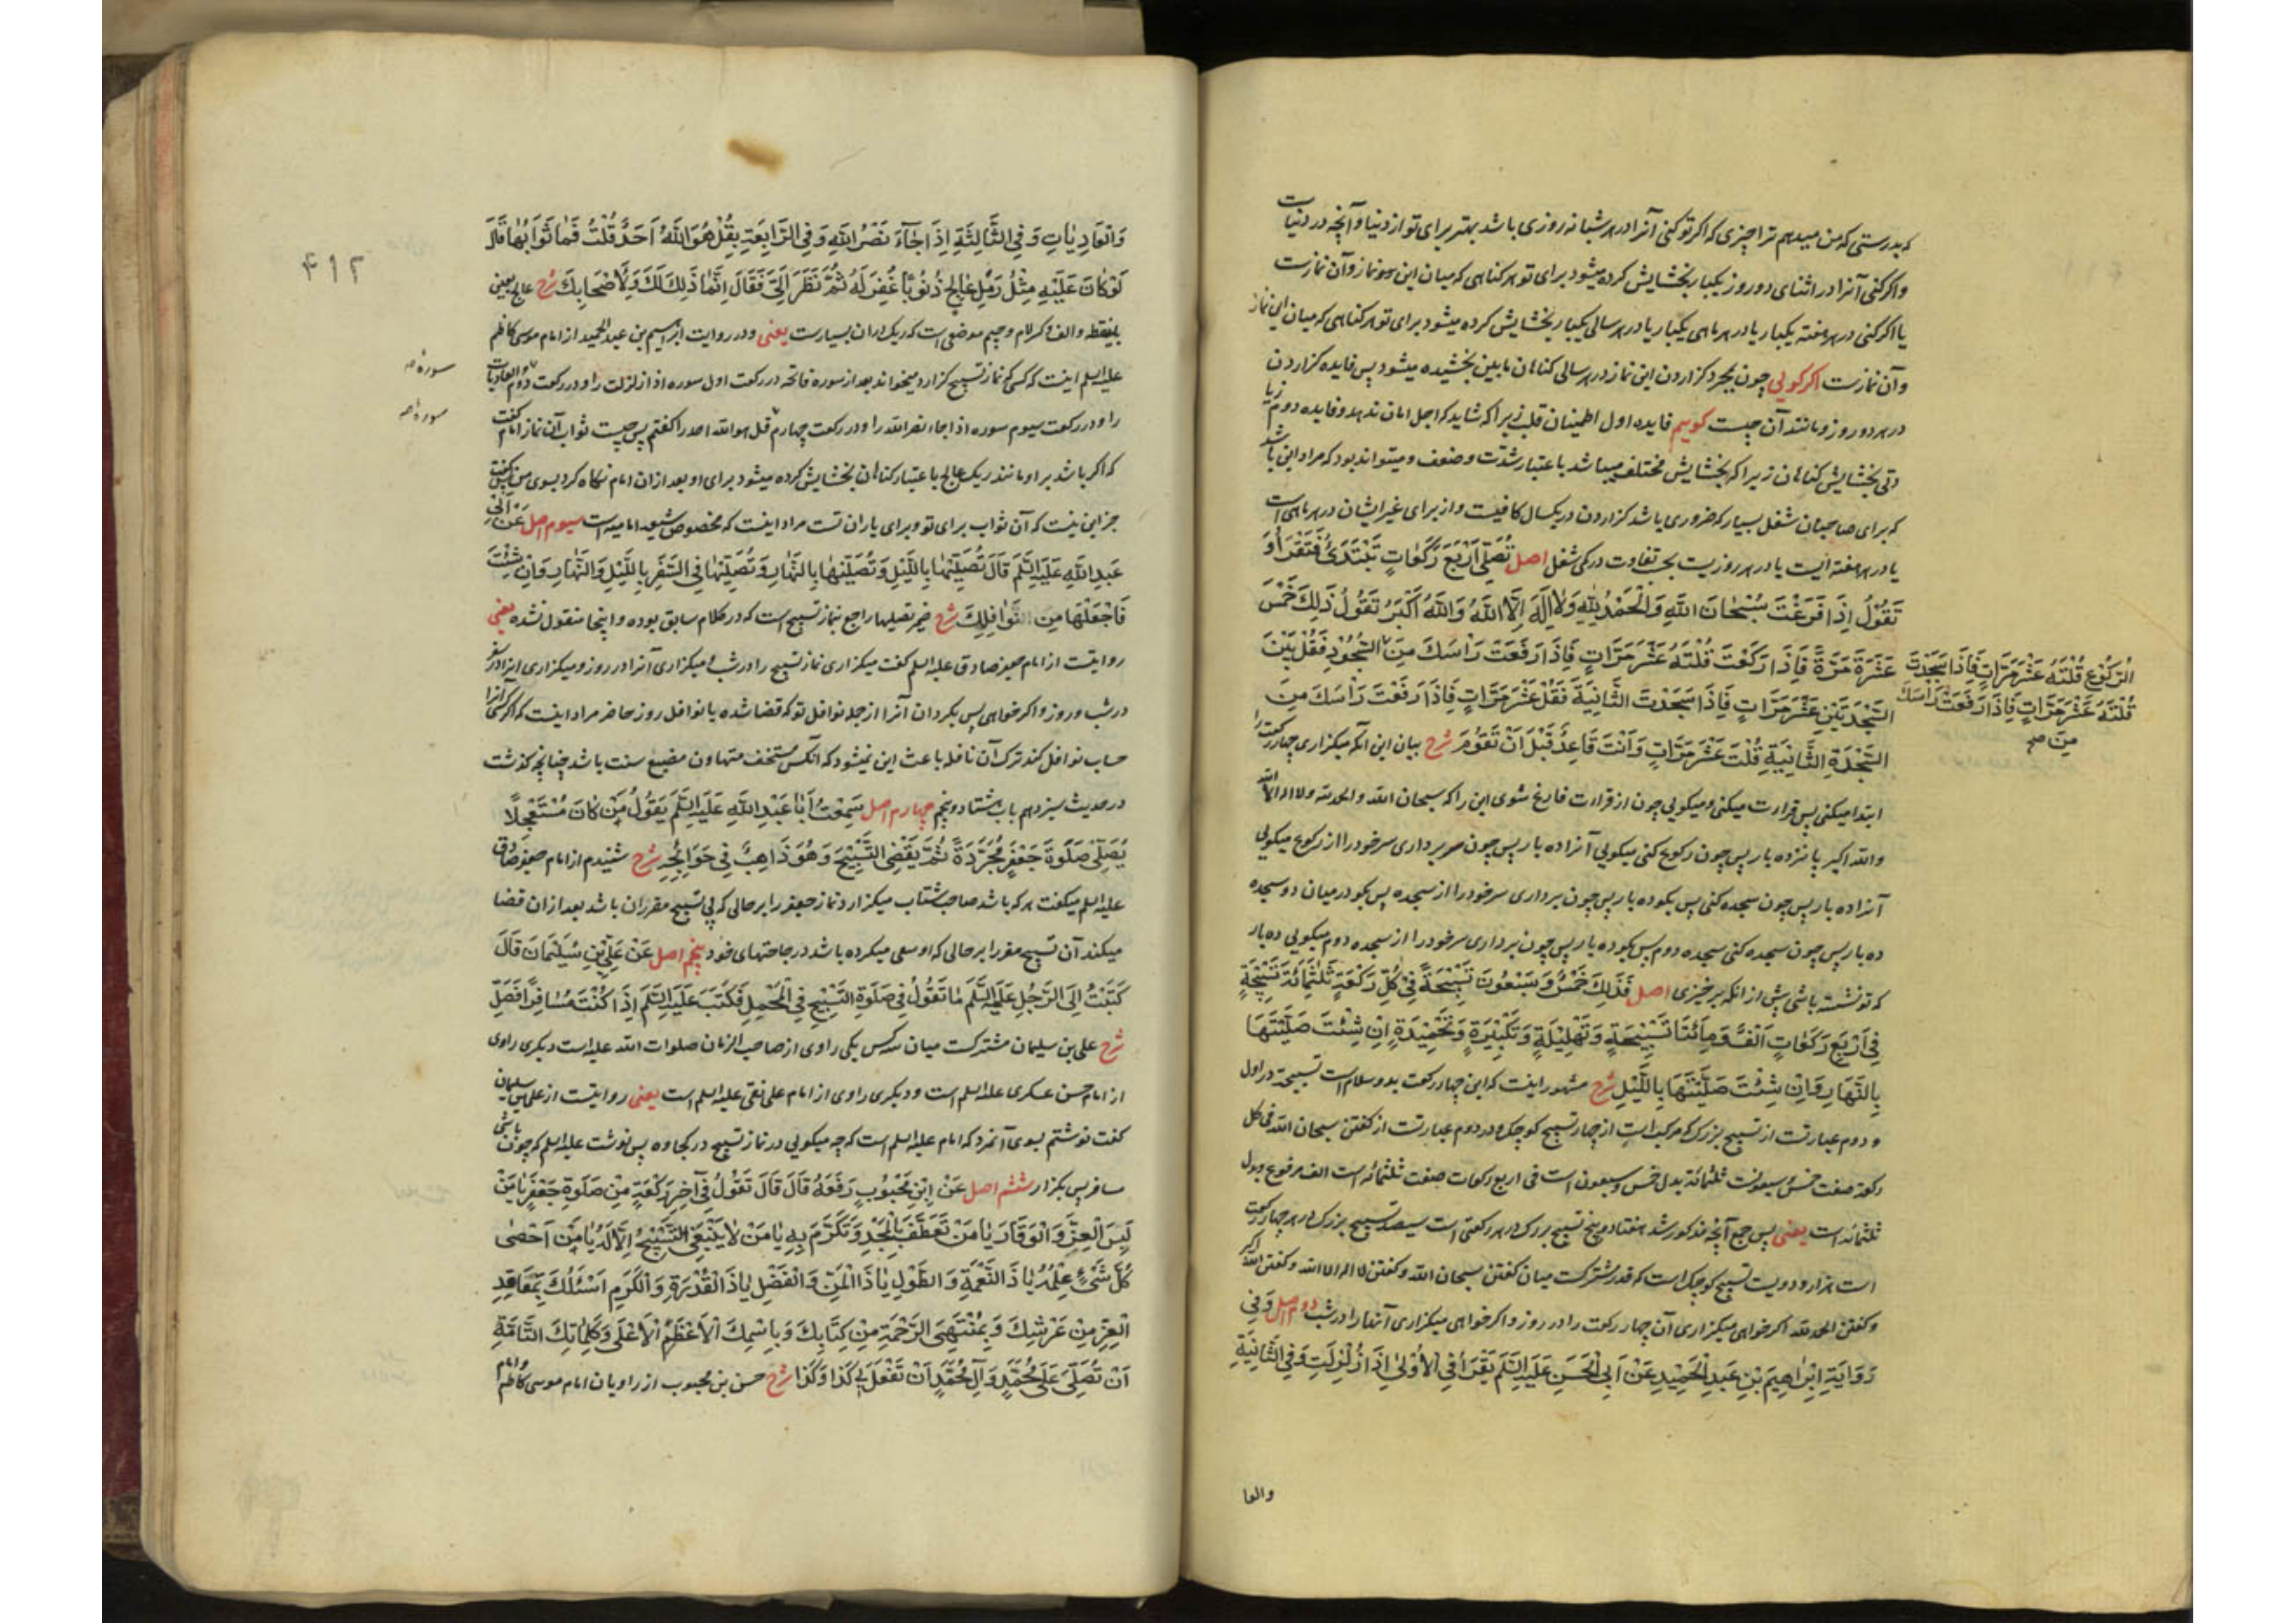 که بدرستی که من میدهم ترا چیزی که اگر تو کنی آنرا در هر شبانه روزی باشد بهتر برای تو از دنیا و آنچه در دنیاست
و اگر کنی آنرا در اثنای دو روز یکبار بخشایش کرده میشود برای تو هر کناهی که میان این نماز و آن نمازست
یا اگر کنی در هر هفته یکبار یا در هر ماهی یکبار یا در هر سالی یکبار بخشایش کرده میشود برای تو هر کناهی که میان این نماز
و آن نمازست اگر گویی چون بمجرد گزاردن این نماز در هر سالی کناهان مابین بخشیده میشود پس فایده گزاردن
در هر دو روز و مانند آن چیست گوییم فایده اول اطمینان قلب زیرا که شاید که اجل امان ندهد و فایده دوم زیا
دتی بخشایش کناهان زیرا که بخشایش مختلف میباشد باعتبار شدت و ضعف و میتواند بود که مراد این باشد
که برای صاحبان شغل بسیار که ضروری باشد گزاردن در یکسال کافیست و از برای غیر ایشان در هر ماهی است
یا در هر هفته ایست یا در هر روزیست بحسب تفاوت در کمی شغل اصل تُصَلّی اَرْبَعَ رَکَعاتٍ تَبْتَدِئُ فَتَقْرَأُ وَ
تَقُولُ اِذا فَرَغْتَ سُبْحانَ اللّهِ وَالْحَمْدُ لِلّهِ وَلا اِلهَ اِلَّا اللّهُ وَاللّهُ اَکْبَرُ تَقُولُ ذلِکَ خَمْسَ
عَشْرَةَ مَرَّةً فَاِذا رَکَعْتَ قُلْتَهُ عَشْرَ مَرّاتٍ فَاِذا رَفَعْتَ رَاْسَکَ مِنَ السُّجُودِ فَقُلْ بَیْنَ
الرُّکُوعِ قُلْتَهُ عَشْرَ مَرّاتٍ فَاِذا سَجَدْتَ
قُلْتَهُ عَشْرَ مَرّاتٍ فَاِذا رَفَعْتَ رَاْسَکَ
مِنَ صح
السَّجْدَتَیْنِ عَشْرَ مَرّاتٍ فَاِذا سَجَدْتَ الثّانِیَةَ فَقُلْ عَشْرَ مَرّاتٍ فَاِذا رَفَعْتَ رَاْسَکَ مِنَ
السَّجْدَةِ الثّانِیَةِ قُلْتَ عَشْرَ مَرّاتٍ وَاَنْتَ قاعِدٌ قَبْلَ اَنْ تَقُومَ شرح بیان این آنکه میگزاری چهار رکعت را
ابتدا میکنی پس قراءت میکنی و میگویی چون از قراءت فارغ شوی این را که سبحان الله والحمد لله ولا اله الا الله
والله اکبر پانزده بار پس چون رکوع کنی میگویی آنرا ده بار پس چون سر برداری سر خود را از رکوع میگویی
آنرا ده بار پس چون سجده کنی پس بگو ده بار پس چون برداری سر خود را از سجده پس بگو در میان دو سجده
ده بار پس چون سجده کنی سجده دوم پس بگو ده بار پس چون برداری سر خود را از سجده دوم میگویی ده بار
که تو نشسته باشی پیش از انکه برخیزی اصل فَذلِکَ خَمْسٌ وَسَبْعُونَ تَسْبیحَةً فی کُلِّ رَکْعَةٍ ثَلثُمِائَةِ تَسْبیحَةٍ
فی اَرْبَعِ رَکَعاتٍ اَلْفٌ وَمِائَتا تَسْبیحَةٍ وَتَهْلیلَةٍ وَتَکْبیرَةٍ وَتَحْمیدَةٍ اِنْ شِئْتَ صَلَّیْتَها
بِالنَّهارِ وَاِنْ شِئْتَ صَلَّیْتَها بِاللَّیْلِ شرح مشهور اینست که این چهار رکعت بدو سلام است تسبیحة در اول
و دوم عبارتست از تسبیح بزرک که مرکب است از چهار تسبیح کوچک و در دوم عبارتست از کفتن سبحان الله فی کل
رکعة صفت خمس و سبعونست ثلثمائة بدل خمس و سبعون است فی اربع رکعات صفت ثلثمائه است الف مرفوع و بدل
ثلثمائه است یعنی پس جمع آنچه مذکور شد هفتاد و پنج تسبیح بزرک در هر رکعتی است سیصد تسبیح بزرک در هر چهار رکعت
است هزار و دویست تسبیح کوچک است که قدر مشترکست میان کفتن سبحان الله و کفتن لا اله الا الله و کفتن الله اکبر
و کفتن الحمد لله اکر خواهی میگزاری آن چهار رکعت را در روز و اکر خواهی میگزاری آنها را در شب دوم اصل وَفی
رِوایَةِ اِبْراهیمَ بْنِ عَبْدِ الْحَمیدِ عَنْ اَبِی الْحَسَنِ عَلَیْهِ السَّلَمُ یَقْرَأُ فِی الْاُولی اِذا زُلْزِلَتْ وَفِی الثّانِیَةِ
والعا
۴۱۲
وَالْعادِیاتِ وَفِی الثّالِثَةِ اِذا جاءَ نَصْرُ اللّهِ وَفِی الرّابِعَةِ بِقُلْ هُوَ اللّهُ اَحَدٌ قُلْتُ فَما ثَوابُها قالَ
لَوْ کانَ عَلَیْهِ مِثْلُ رَمْلِ عالِجٍ ذُنُوبًا غُفِرَ لَهُ ثُمَّ نَظَرَ اِلَیَّ فَقالَ اِنَّما ذلِکَ لَکَ وَلِاَصْحابِکَ شرح عالج بعین
بینقطه و الف و کسر لام و جیم موضعی است که ریک دران بسیارست یعنی و در روایت ابرهیم بن عبد الحمید از امام موسی کاظم
علیه السلم اینست که کسی که نماز تسبیح گزارد میخواند بعد از سوره فاتحه در رکعت اول سوره اذا زلزلت را و در رکعت دوم والعادیات
سوره صح
را و در رکعت سیوم سوره اذا جاء نصر الله را و در رکعت چهارم قل هو الله احد را کفتم پس چیست ثواب آن نماز امام کفت
سوره صح
که اکر باشد بر او مانند ریک عالج باعتبار کناهان بخشایش کرده میشود برای او بعد ازان امام نکاه کرد بسوی من پس کفت
جز این نیست که آن ثواب برای تو و برای یاران تست مراد اینست که مخصوص شیعه امامیه است سیوم اصل عَنْ اَبی
عَبْدِ اللّهِ عَلَیْهِ السَّلَمُ قالَ تُصَلّیها بِاللَّیْلِ وَتُصَلّیها بِالنَّهارِ وَتُصَلّیها فِی السَّفَرِ بِاللَّیْلِ وَالنَّهارِ وَاِنْ شِئْتَ
فَاجْعَلْها مِنَ النَّوافِلِکَ شرح ضمیر تصلیها راجع بنماز تسبیح است که در کلام سابق بوده و اینجا منقول نشده یعنی
روایتست از امام جعفر صادق علیه السلم کفت میگزاری نماز تسبیح را در شب و میگزاری آنرا در روز و میگزاری انرا در سفر
در شب و روز و اکر خواهی پس بکردان آنرا از جمله نوافل تو که قضا شده یا نوافل روز حاضر مراد اینست که اکر کسی آنرا
حساب نوافل کند ترک آن نافله باعث این نمیشود که آنکس مستخف متهاون مضیع سنت باشد چنانچه کذشت
در حدیث سیزدهم باب هشتاد و پنجم چهارم اصل سَمِعْتُ اَبا عَبْدِ اللّهِ عَلَیْهِ السَّلَمُ یَقُولُ مَنْ کانَ مُسْتَعْجِلًا
یُصَلّی صَلوةَ جَعْفَرٍ مُجَرَّدَةً ثُمَّ یَقْضِی التَّسْبیحَ وَهُوَ ذاهِبٌ فی حَوائِجِهِ شرح شنیدم از امام جعفر صادق
علیه السلم میکفت هر که باشد صاحب شتاب میگزارد نماز جعفر را بر حالی که بی تسبیح مقرران باشد بعد ازان قضا
میکند آن تسبیح مقرر را بر حالی که او سعی میکرده باشد در حاجتهای خود پنجم اصل عَنْ عَلِیِّ بْنِ سُلَیْمانَ قالَ
کَتَبْتُ اِلَی الرَّجُلِ عَلَیْهِ السَّلَمُ ما تَقُولُ فی صَلوةِ التَّسْبیحِ فِی الْمَحْمِلِ فَکَتَبَ عَلَیْهِ السَّلَمُ اِذا کُنْتَ مُسافِرًا فَصَلِّ
شرح علی بن سلیمان مشترکست میان سه کس یکی راوی از صاحب الزمان صلوات الله علیه است دیکری راوی
از امام حسن عسکری علیه السلم است و دیکری راوی از امام علی نقی علیه السلم است یعنی روایتست از علی بن سلیمان
کفت نوشتم بسوی آنمرد که امام علیه السلم است که چه میکویی در نماز تسبیح در کجاوه پس نوشت علیه السلم که چون باشی
مسافر پس بگزار ششم اصل عَنْ اِبْنِ مَحْبُوبٍ رَفَعَهُ قالَ قالَ تَقُولُ فی آخِرِ رَکْعَةٍ مِنْ صَلوةِ جَعْفَرٍ یا مَنْ
لَبِسَ الْعِزَّ وَالْوَقارَ یا مَنْ تَعَطَّفَ بِالْمَجْدِ وَتَکَرَّمَ بِهِ یا مَنْ لا یَنْبَغِی التَّسْبیحُ اِلّا لَهُ یا مَنْ اَحْصی
کُلَّ شَیْءٍ عِلْمُهُ یا ذَا النِّعْمَةِ وَالطَّوْلِ یا ذَا الْمَنِّ وَالْفَضْلِ یا ذَا الْقُدْرَةِ وَالْکَرَمِ اَسْئَلُکَ بِمَعاقِدِ
الْعِزِّ مِنْ عَرْشِکَ وَبِمُنْتَهَی الرَّحْمَةِ مِنْ کِتابِکَ وَبِاسْمِکَ الْاَعْظَمِ الْاَعْلی وَکَلِماتِکَ التّامَّةِ
اَنْ تُصَلِّیَ عَلی مُحَمَّدٍ وَآلِ مُحَمَّدٍ اَنْ تَفْعَلَ بی کَذا وَکَذا شرح حسن بن محبوب از راویان امام موسی کاظم و امام